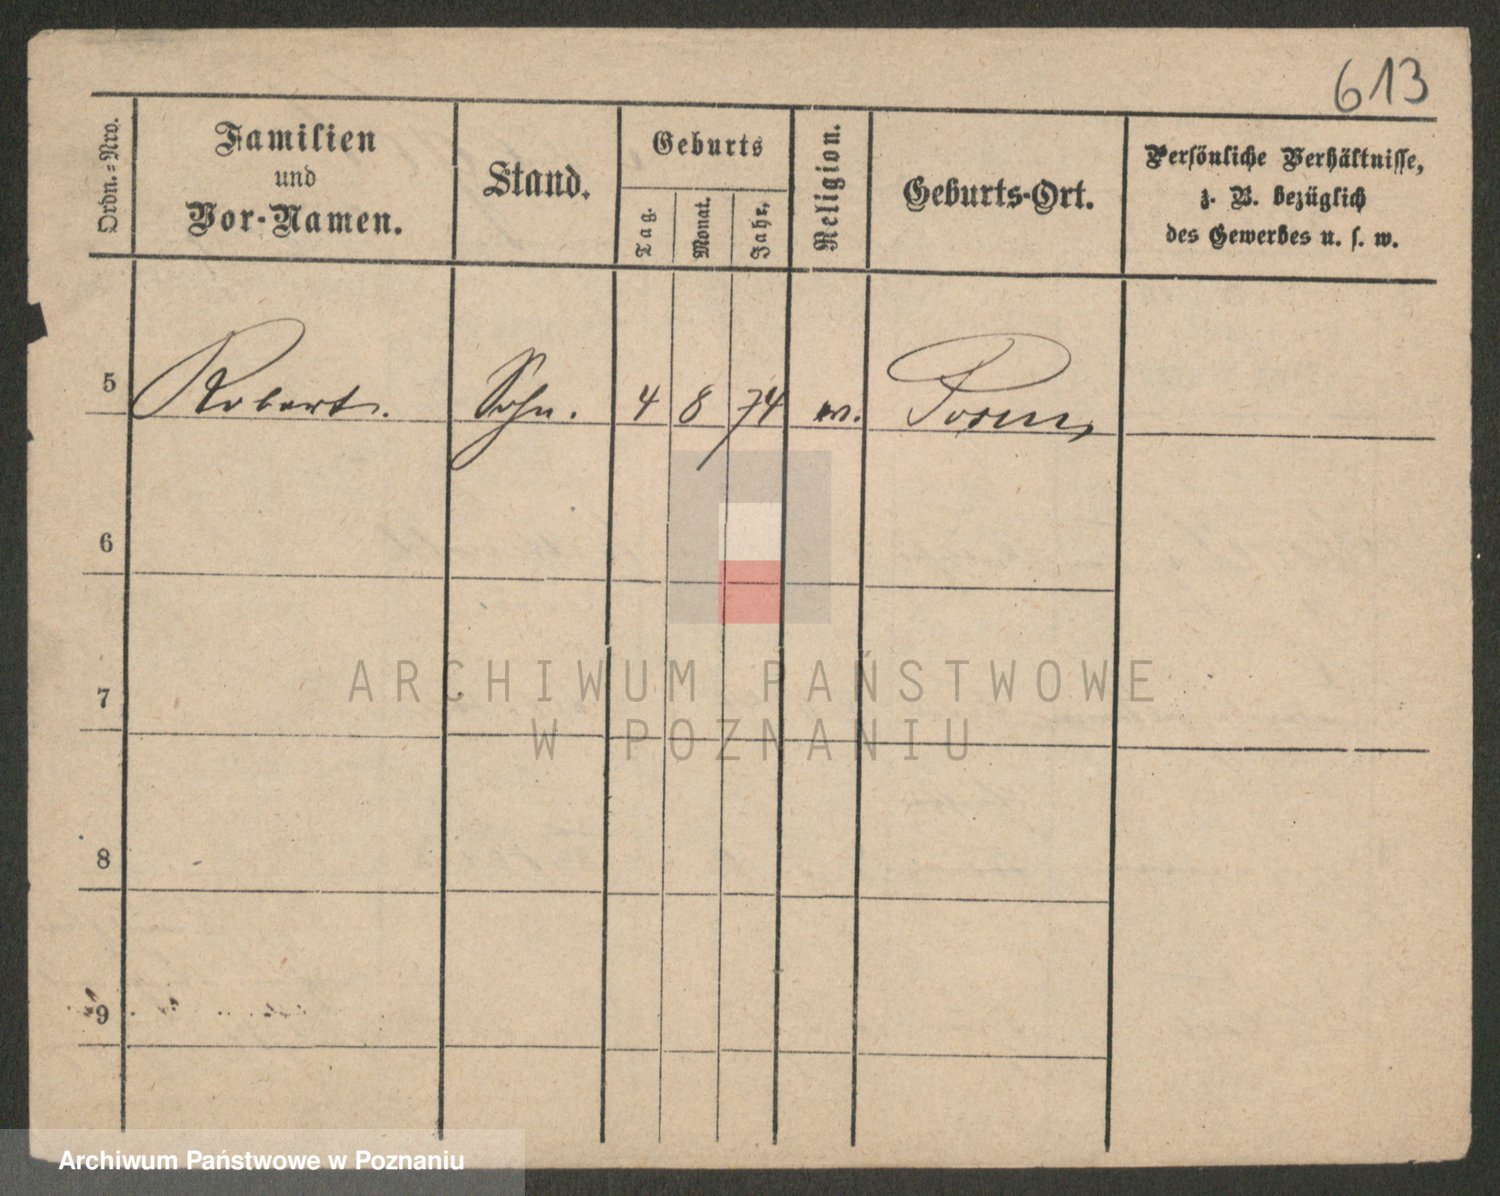 613
Ordn.=Nro.
Familien
und
Vor-Namen.
Stand.
Geburts
Tag.
Monat.
Jahr.
Religion.
Geburts-Ort.
Persönliche Verhältnisse,
z. B. bezüglich
des Gewerbes u. s. w.
5 Robert. Sohn. 4 8 74 ev. Posen
6
7
8
9
ARCHIWUM PAŃSTWOWE
W POZNANIU
Archiwum Państwowe w Poznaniu